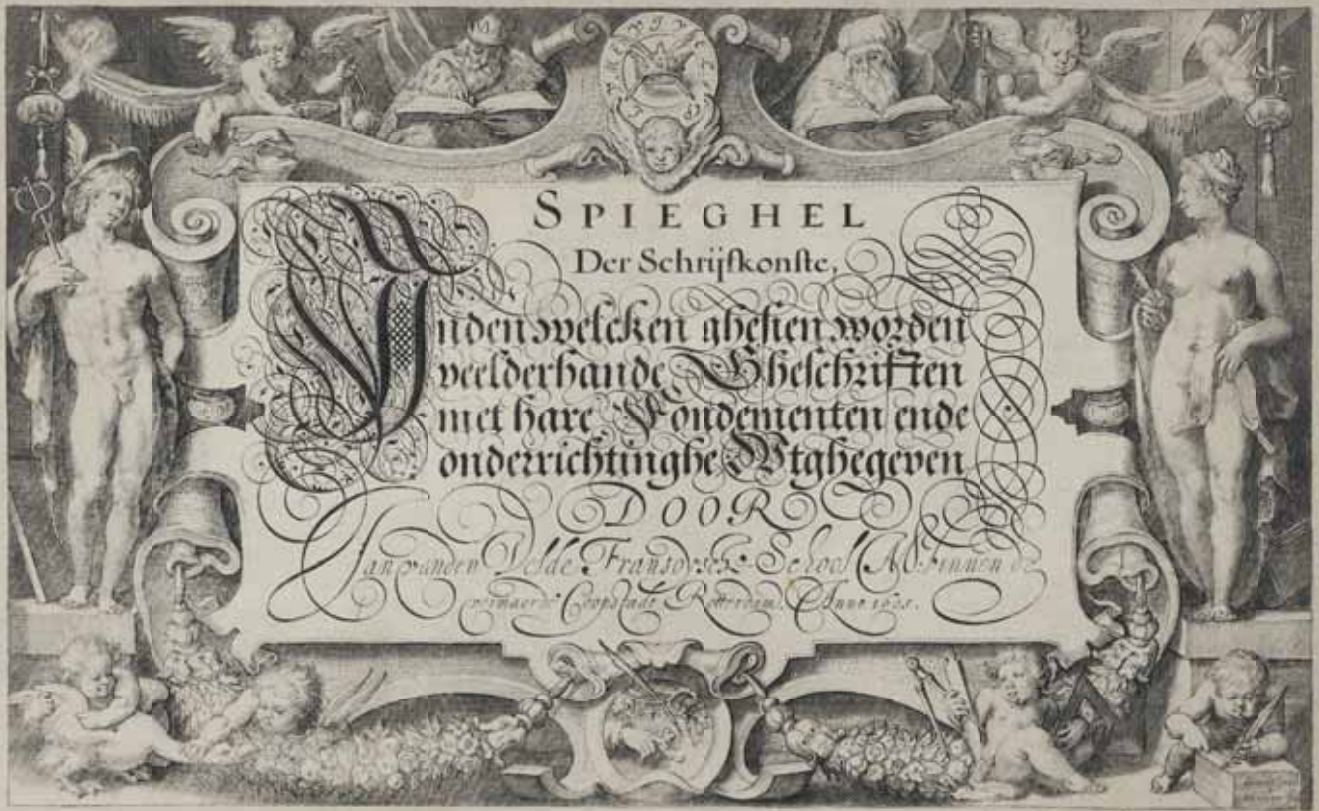 SPIEGHEL
Der Schrijfkonſte,
Inden welcken gheſien worden
veelderhande Gheſchriften
met hare Fondementen ende
onderrichtinghe Wtghegeven
DOOR
Jan vanden Velde Franſoyſche School binnen de
vermaerde Coopſtadt Rotterdam Anno 1605.